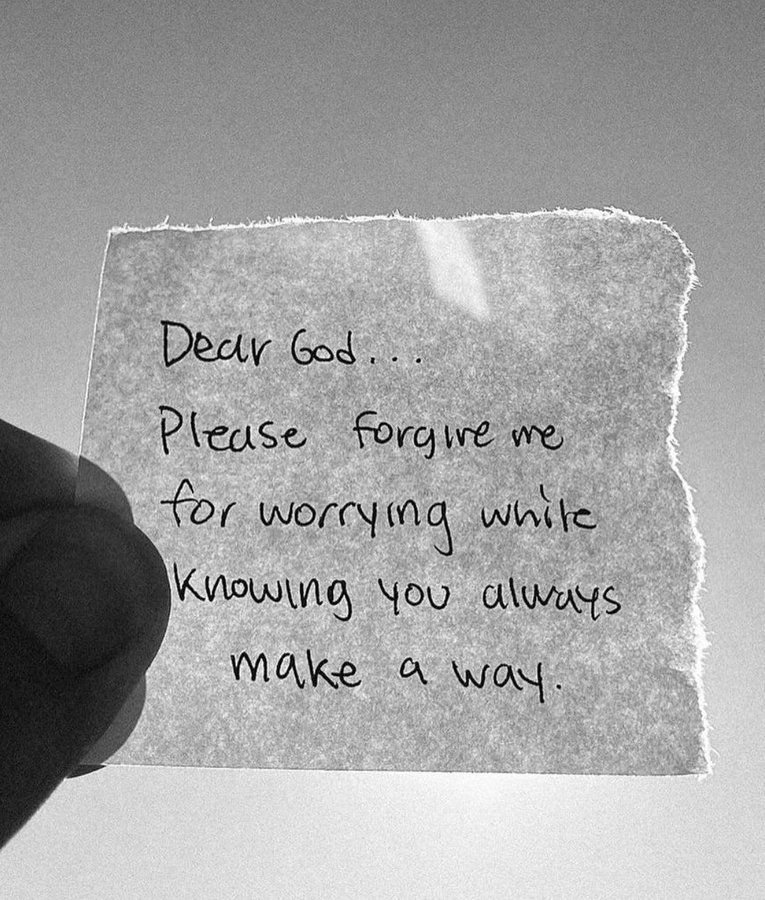 Dear God...
Please forgive me
for worrying while
knowing you always
make a way.